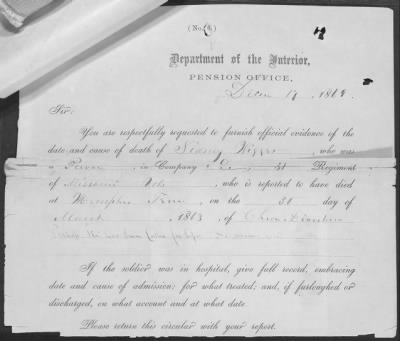 (No. 6)
Department of the Interior,
PENSION OFFICE,
Decm 17, 186
Sir:
You are respectfully requested to furnish official evidence of the
date and cause of death of Sidney, who was
a, in Company, 31 Regiment
of Missouri Vols, who is reported to have died
at Memphis Tenn, on the 31 day of
March, 1863, of Chron Diarrhea
If the soldier was in hospital, give full record, embracing
date and cause of admission; for what treated; and, if furloughed or
discharged, on what account and at what date.
Please return this circular with your report.